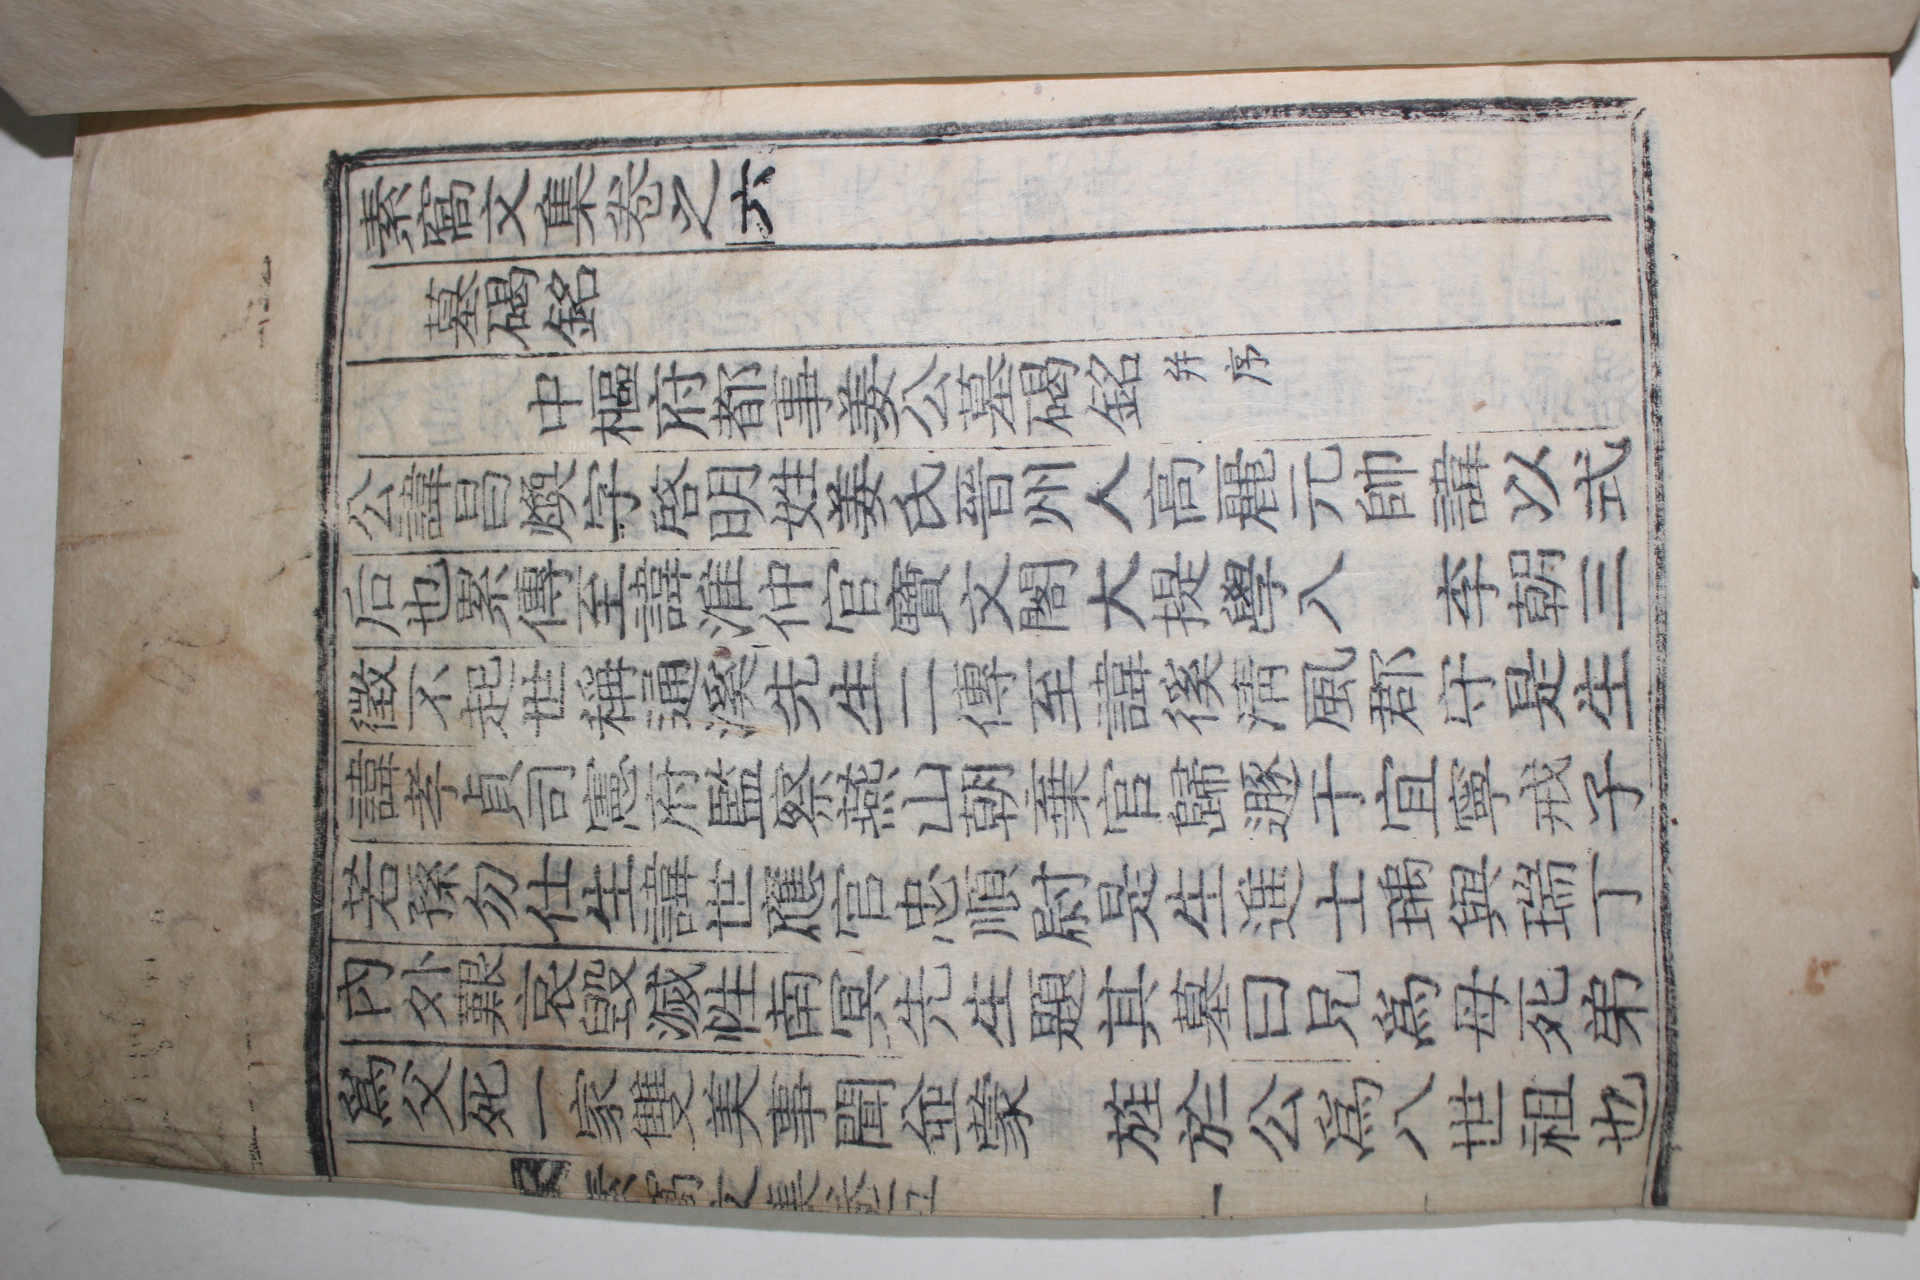 素窩文集卷之六
墓碣銘
中樞府都事姜公墓碣銘 幷序
公諱昌煥字啓明姓姜氏晉州人高麗元帥諱以式
后也累傳至諱淮仲官寶文閣大提學入 李朝三
徵不起世稱通溪先生二傳至諱徯淸風郡守是生
諱孝貞司憲府監察燕山朝棄官歸遯于宜寧戒子
若孫勿仕生諱世應官忠順尉是生進士瑀與瑞丁
內外艱哀毁滅性南冥先生題其墓曰兄爲母死弟
爲父死一家雙美事聞並蒙 旌於公爲八世祖也
素窩文集卷之六 一